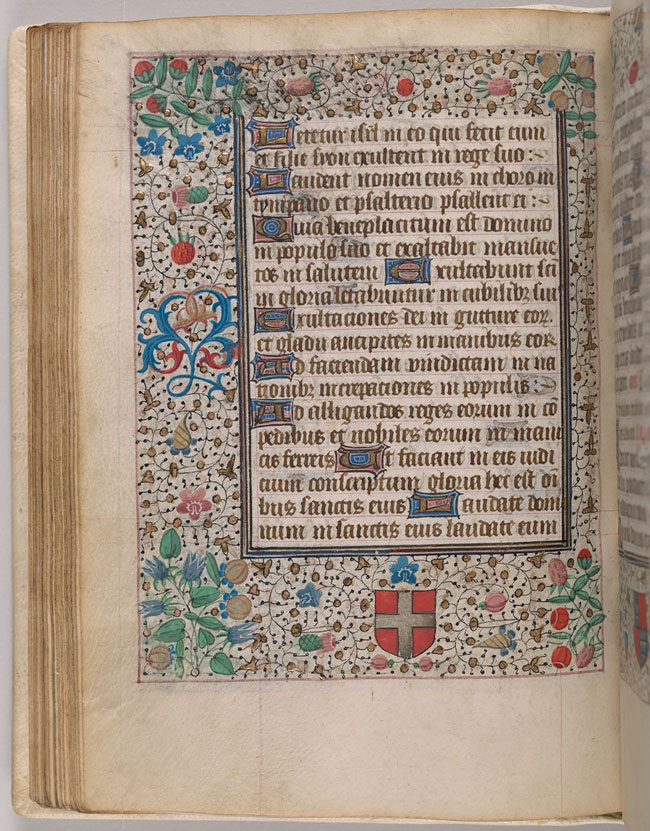 Letetur isrl in eo qui fecit eum
et filie syon exultent in rege suo :~
Laudent nomen eius in choro in
tympano et psalterio psallent ei :~
Quia beneplacitum est domino
in populo suo et exaltabit mansue
tos in salutem Exultabunt sci
in gloria letabuntur in cubilibz suis
Exultaciones dei in gutture eor.
et gladii ancipites in manibus eor.
Ad faciendam vindictam in na
tionibz increpaciones in populis :~
Ad alligandos reges eorum in co
pedibus et nobiles eorum in mani
cis ferreis Et faciant in eis iudi
cium conscriptum gloria hec est oi
bus sanctis eius Laudate domi
num in sanctis eius laudate eum